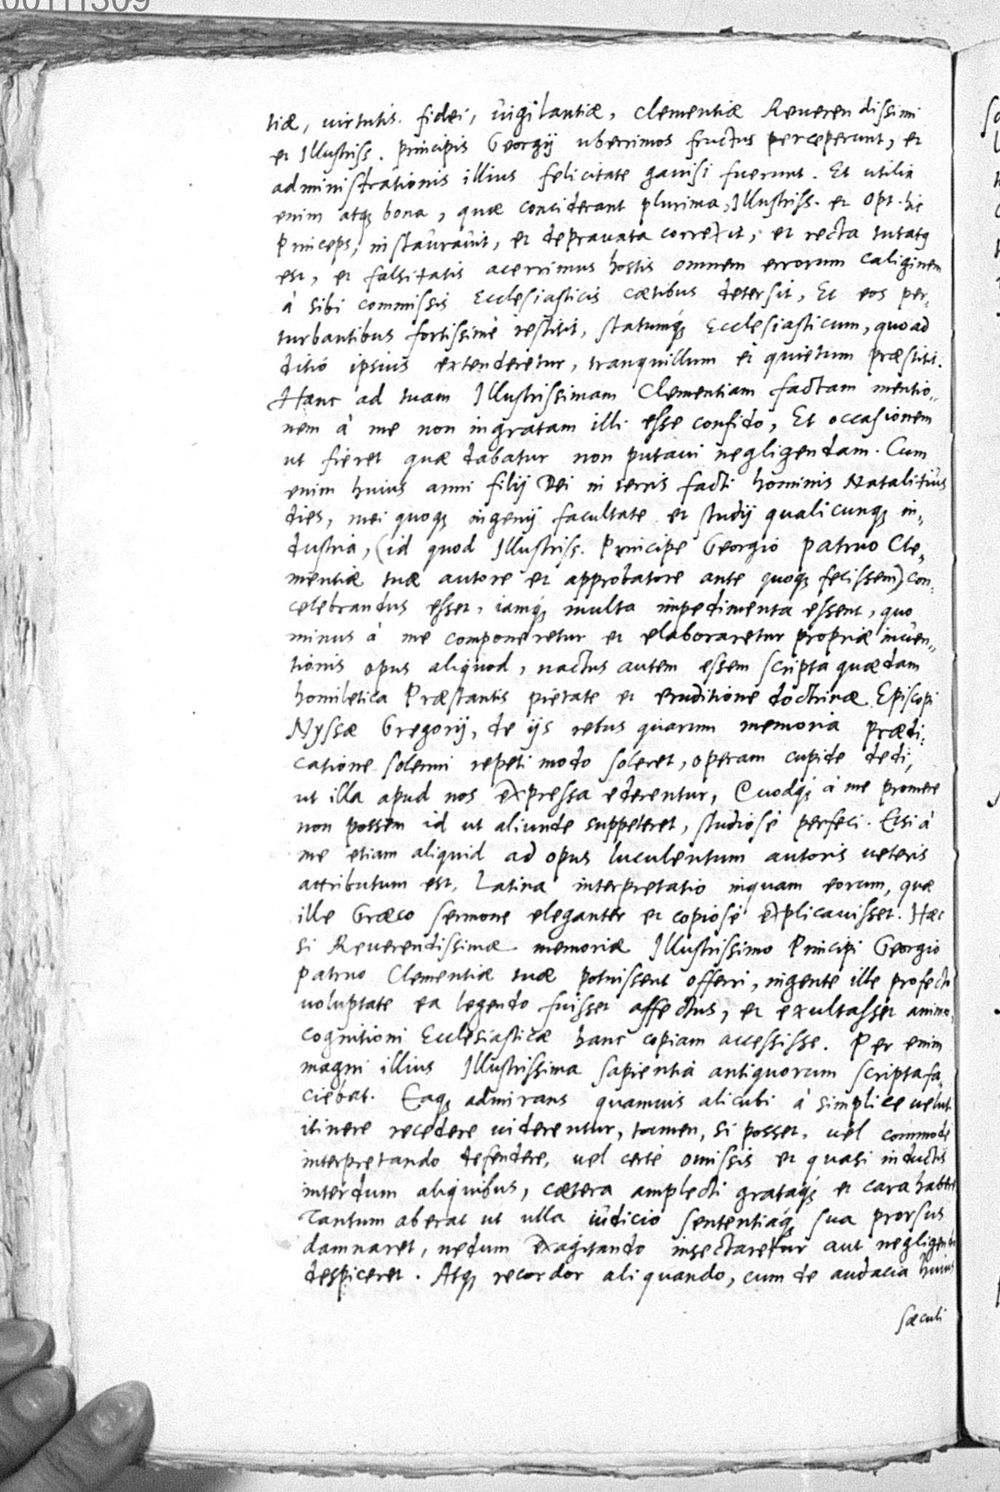 00111309
tiæ, virtutis. fidei, vigilantiæ, clementiæ Reverendissimi
et Illustriss. principis Georgij uberrimos fructus perceperunt, et
administrationis illius felicitate gavisi fuerunt. Et utilia
enim atq; bona, quæ considerant plurima, Illustriss. et opt. hic
Princeps, instauravit, et depravata correxit, et recta tutatq
est, et falsitatis acerrimus hostis omnem errorum caliginem
à sibi commissis Ecclesiasticis cætibus detersit, Et eos per,
turbantibus fortissimè restitit, statumq́; Ecclesiasticum, quoad
ditio ipsius extenderetur, tranquillum et quietum præstitit.
Hanc ad tuam Illustrissimam Clementiam factam mentio,,
nem à me non ingratam illi esse confido, Et occasionem
ut fieret quæ dabatur non putavi negligendam. Cum
enim huius anni filij Dei in terris facti hominis Natalitius
dies, mei quoq; ingenij facultate et studij qualicunq; in,
dustria, (id quod Illustriss. Principe Georgio patruo Cle,
mentiæ tuæ autore et approbatore ante quoq; fecissem) con,
celebrandus esset, iamq́; multa impedimenta essent, quo
minus à me componeretur et elaboraretur propriæ inven,,
tionis opus aliquod, nactus autem essem scripta quædam
homiletica Præstantis pietate et eruditione doctrinæ Episcopi
Nyssæ Gregorij, de ijs rebus quarum memoria prædi,
catione solenni repeti modo soleret, operam cupide dedi,
ut illa apud nos expressa ederentur, Quodq́; à me promere
non possem id ut aliunde suppeteret, studiosè perfeci. Etsi à
me etiam aliquid ad opus luculentum autoris veteris
attributum est, Latina interpretatio inquam eorum, quæ
ille Græco sermone eleganter et copiosè explicavisset. Hæc
si Reverendissimæ memoriæ Illustrissimo Principi Georgio
patruo Clementiæ tuæ potuissent offerri, ingente ille profectò
voluptate ea legendo fuisset affectus, et exultasset animo,
cognitioni Ecclesiasticæ hanc copiam accessisse. Per enim
magni illius Illustrissima sapientia antiquorum scripta fa,
ciebat. Eaq; admirans quamvis alicubi à simplice velut
itinere recedere viderentur, tamen, si posset, vel commodè
interpretando defendere, vel certè omissis et quasi inductis
interdum aliquibus, cætera amplecti grataq́; et cara habere
Tantum aberat ut ulla iudicio sententiaq́; sua prorsus
damnaret, nedum exagitando insectaretur aut negligendo
despiceret. Atq; recordor aliquando, cum de audacia huius
sæculi